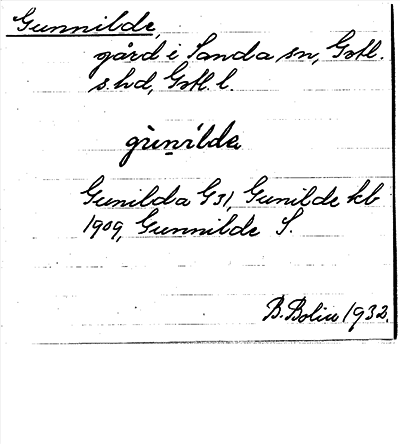 Gunnilde,
gård i Sanda sn, Gotl.
s. hd, Gotl. l.
gùn̥ilda
Gunilda G31, Gunilde kb
1909, Gunnilde S.
B. Bolin 1932.